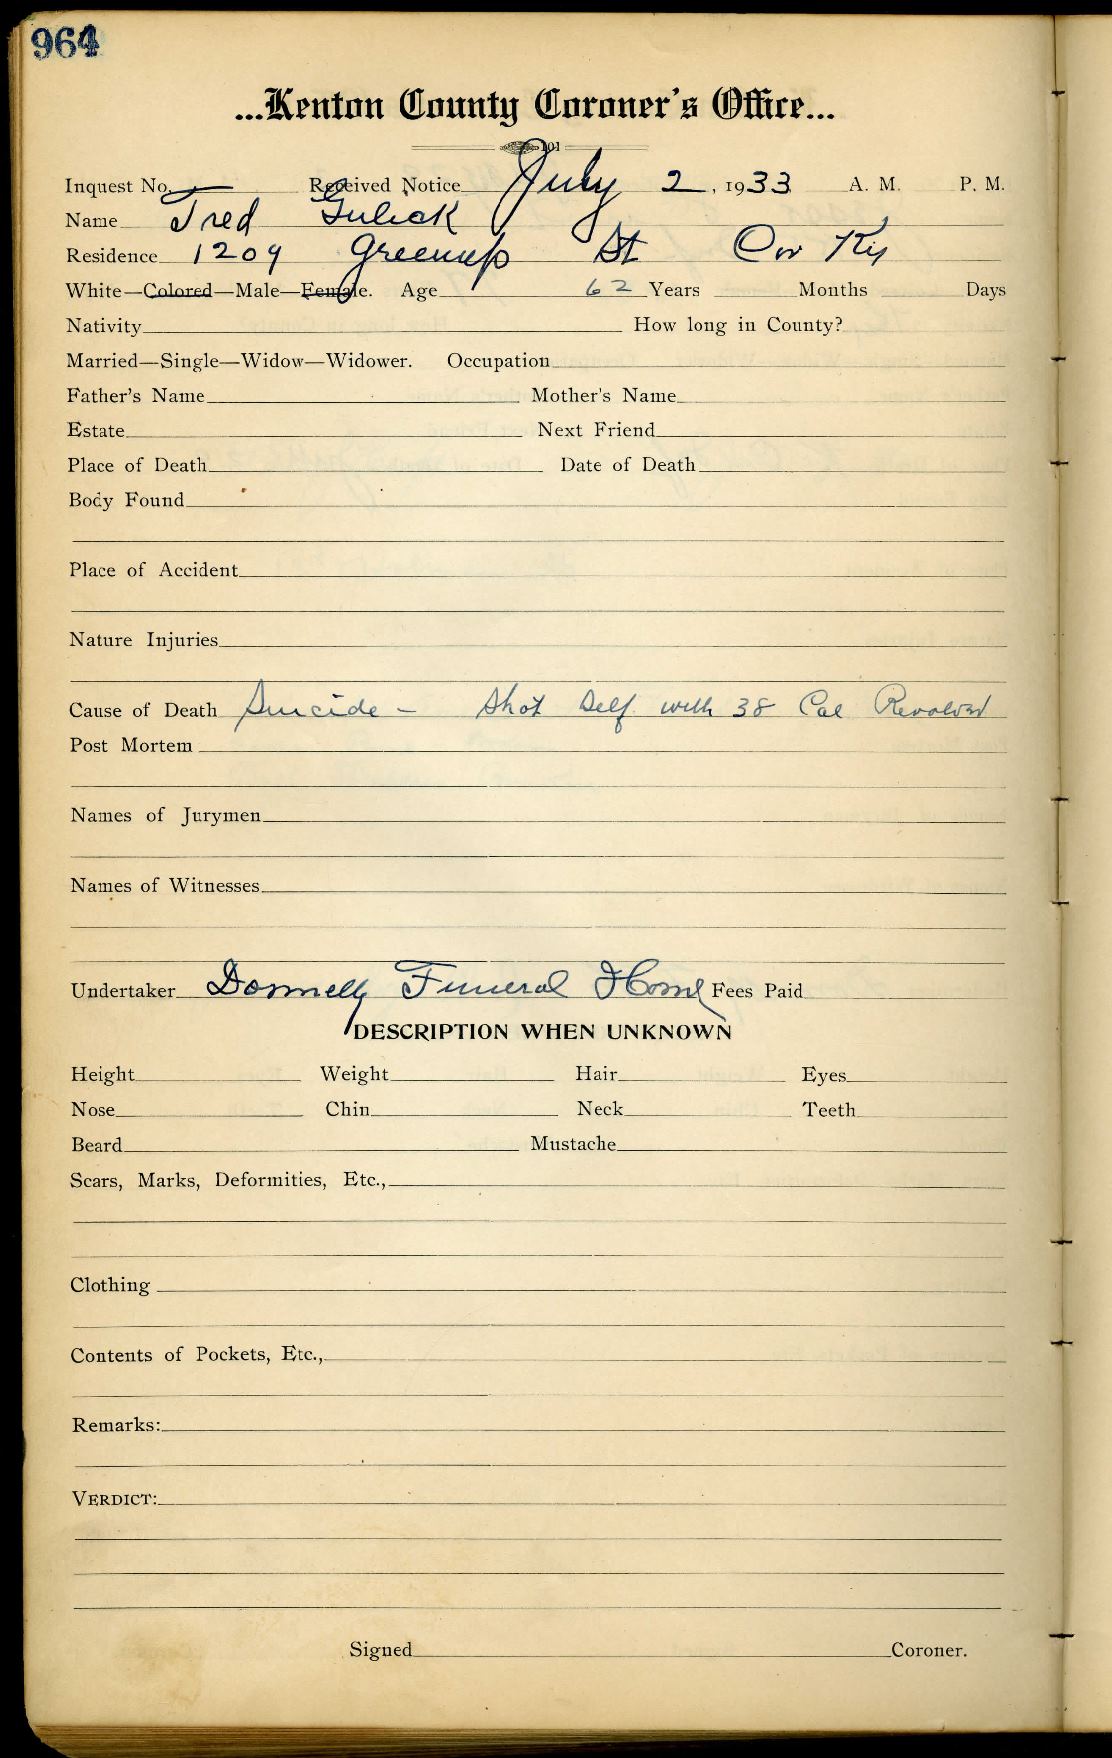 964
...Kenton County Coroner's Office...
101
Inquest No. — Received Notice July 2, 1933 A. M. P. M.
Name Fred Gulick
Residence 1209 Greenup St Cov Ky
White—Colored—Male—Female. Age 62 Years Months Days
Nativity How long in County?
Married—Single—Widow—Widower. Occupation
Father's Name Mother's Name
Estate Next Friend
Place of Death Date of Death
Body Found
Place of Accident
Nature Injuries
Cause of Death Suicide - Shot Self with 38 Cal Revolver
Post Mortem
Names of Jurymen
Names of Witnesses
Undertaker Donnelly Funeral Home Fees Paid
DESCRIPTION WHEN UNKNOWN
Height Weight Hair Eyes
Nose Chin Neck Teeth
Beard Mustache
Scars, Marks, Deformities, Etc.,
Clothing
Contents of Pockets, Etc.,
Remarks:
VERDICT:
Signed Coroner.